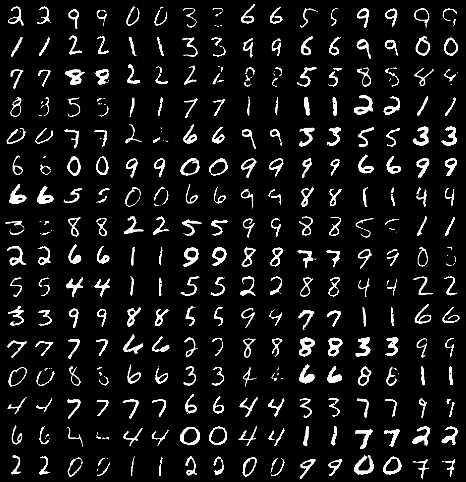 2 2 9 9 0 0 3 3 6 6 5 5 9 9 9 9
1 1 2 2 1 1 3 3 9 9 6 6 9 9 0 0
7 7 8 8 2 2 2 2 8 8 5 5 8 5 8 4
8 8 5 5 1 1 7 7 1 1 1 1 2 2 1 1
0 0 7 7 2 6 6 9 9 3 3 5 5 3 3
6 6 0 0 9 9 0 0 9 9 9 9 6 6 9 9
6 6 5 5 0 0 6 6 9 9 8 8 1 1 4 4
3 3 8 8 2 2 5 5 9 9 8 8 5 5 1 1
2 2 6 6 1 1 9 9 8 8 7 7 9 9 0
5 5 4 4 1 1 5 5 2 2 8 8 4 4 2 2
3 3 9 9 8 8 5 5 9 4 7 7 1 1 6 6
7 7 7 7 6 6 2 2 8 8 8 8 3 3 9 9
0 0 8 8 6 6 3 3 4 6 6 8 8 1 1
4 4 7 7 7 7 6 6 4 4 3 3 7 7 9 9
6 6 4 4 4 0 0 4 4 1 1 7 7 2 2
2 2 0 0 1 1 2 2 0 0 9 9 0 0 7 7